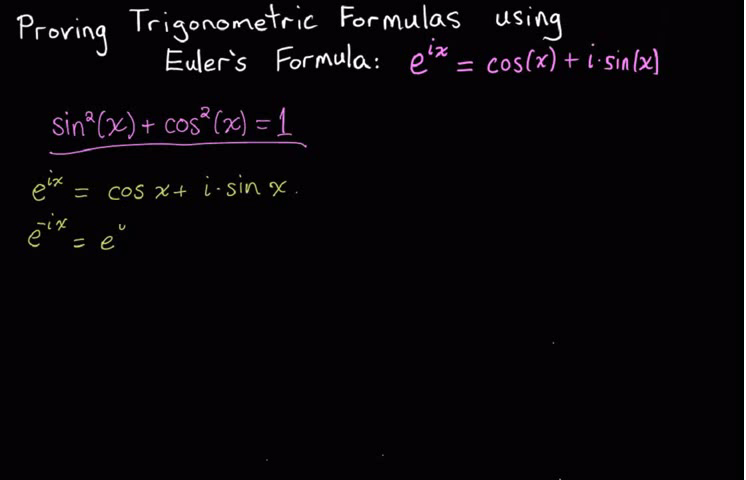 Proving Trigonometric Formulas using
Euler's Formula: e^{ix} = cos(x) + i·sin(x)
sin²(x) + cos²(x) = 1
e^{ix} = cos x + i·sin x.
e^{-ix} = e